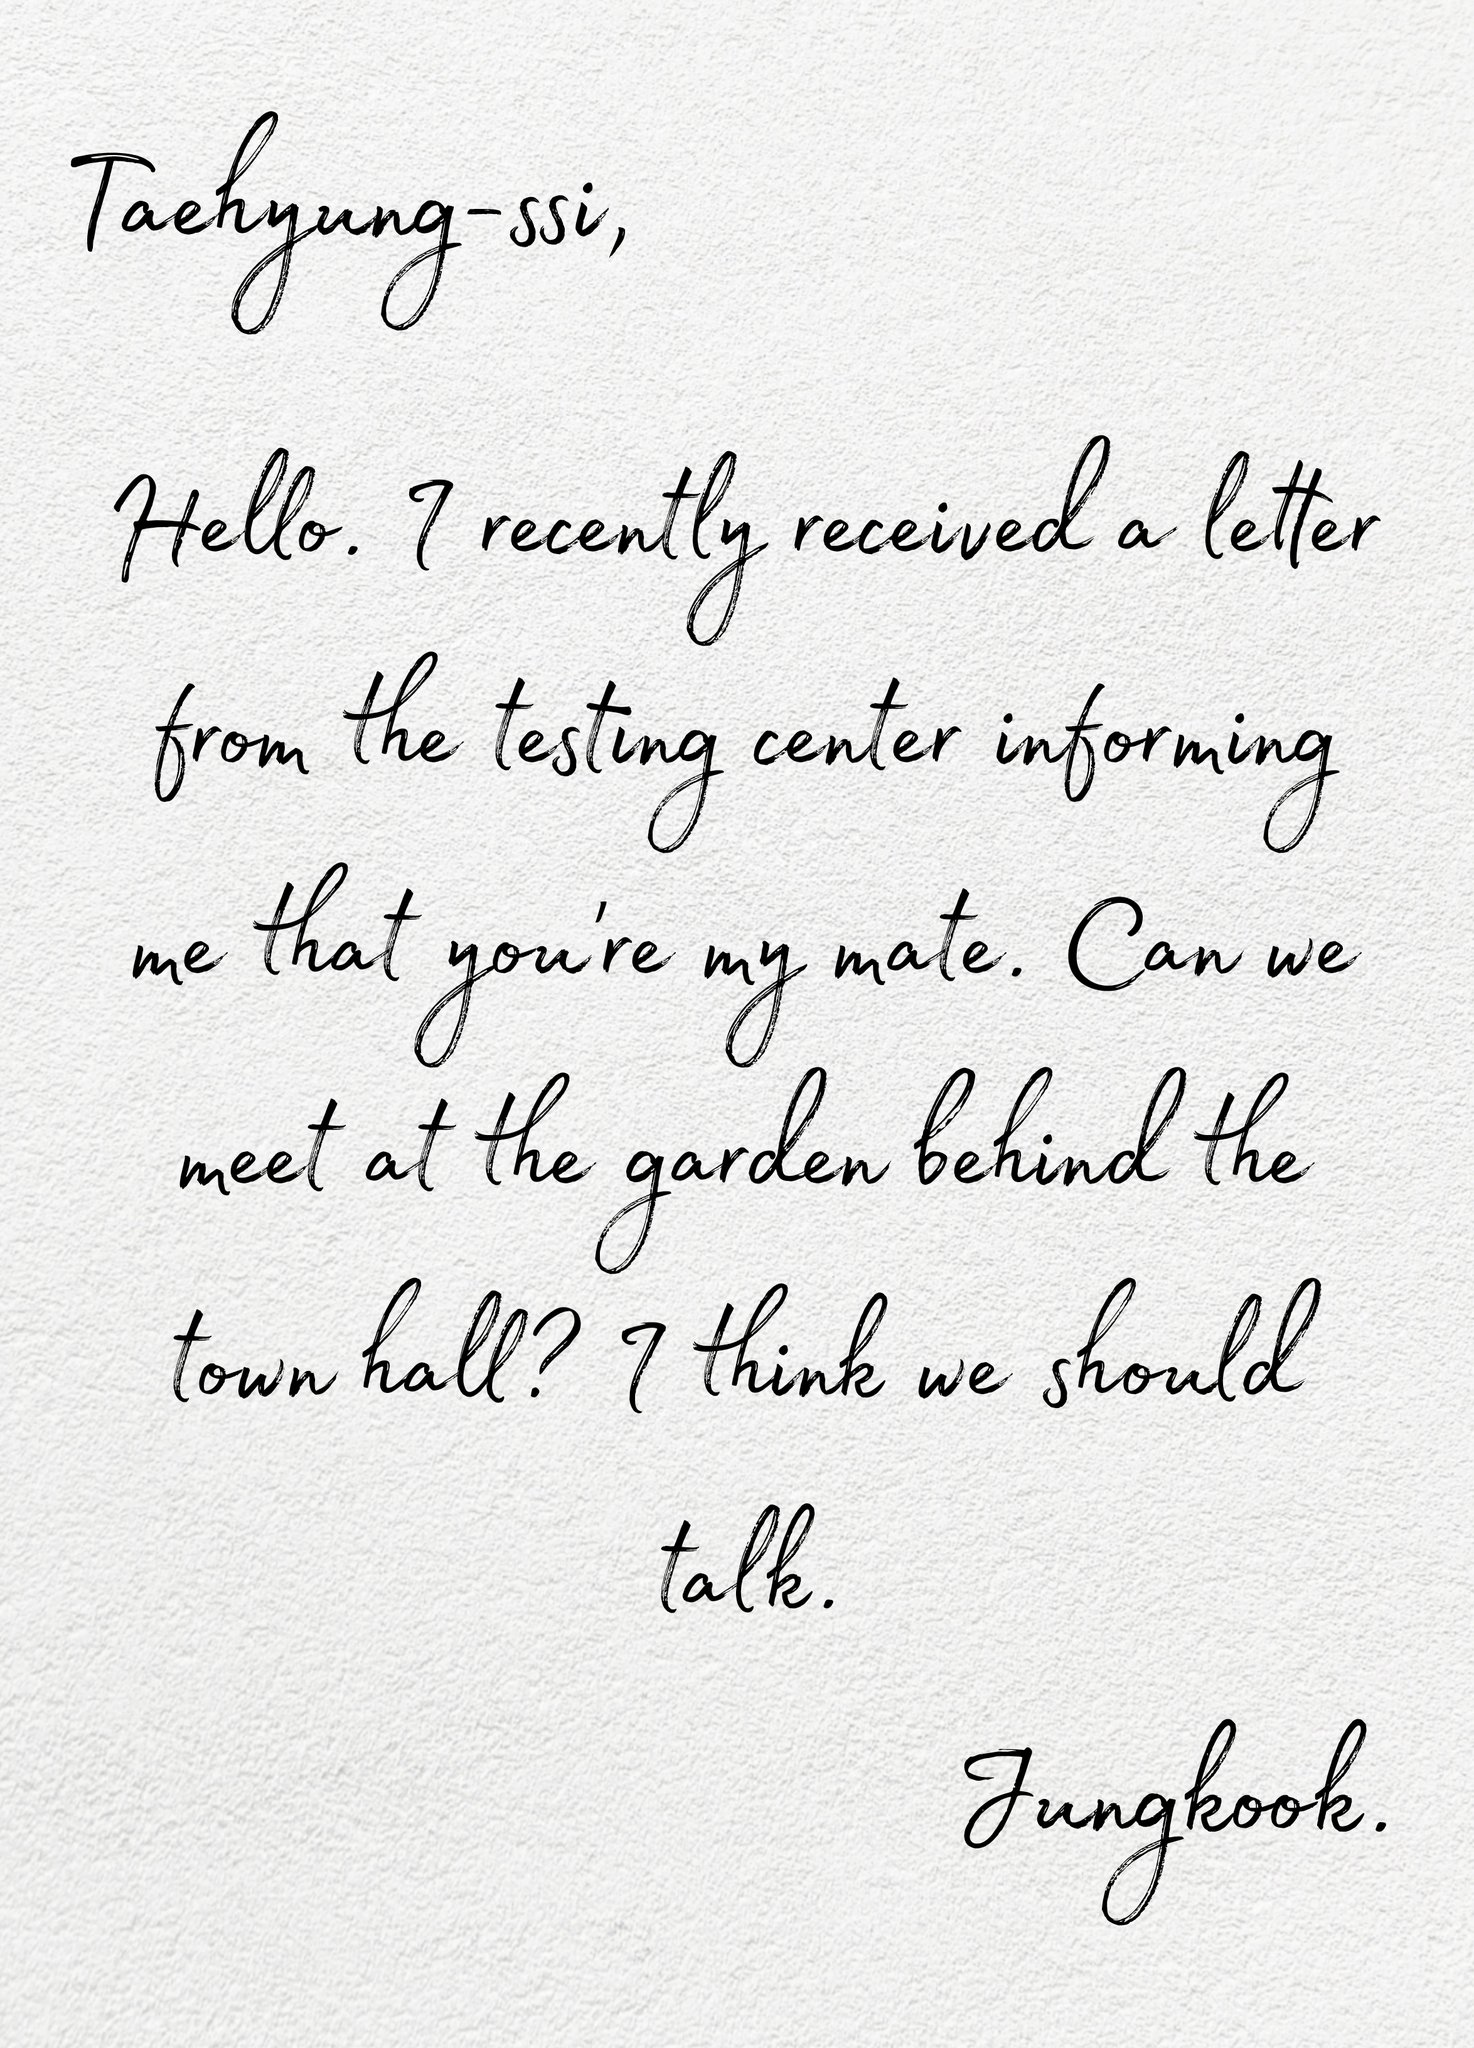 Taehyung-ssi,
Hello. I recently received a letter
from the testing center informing
me that you're my mate. Can we
meet at the garden behind the
town hall? I think we should
talk.
Jungkook.